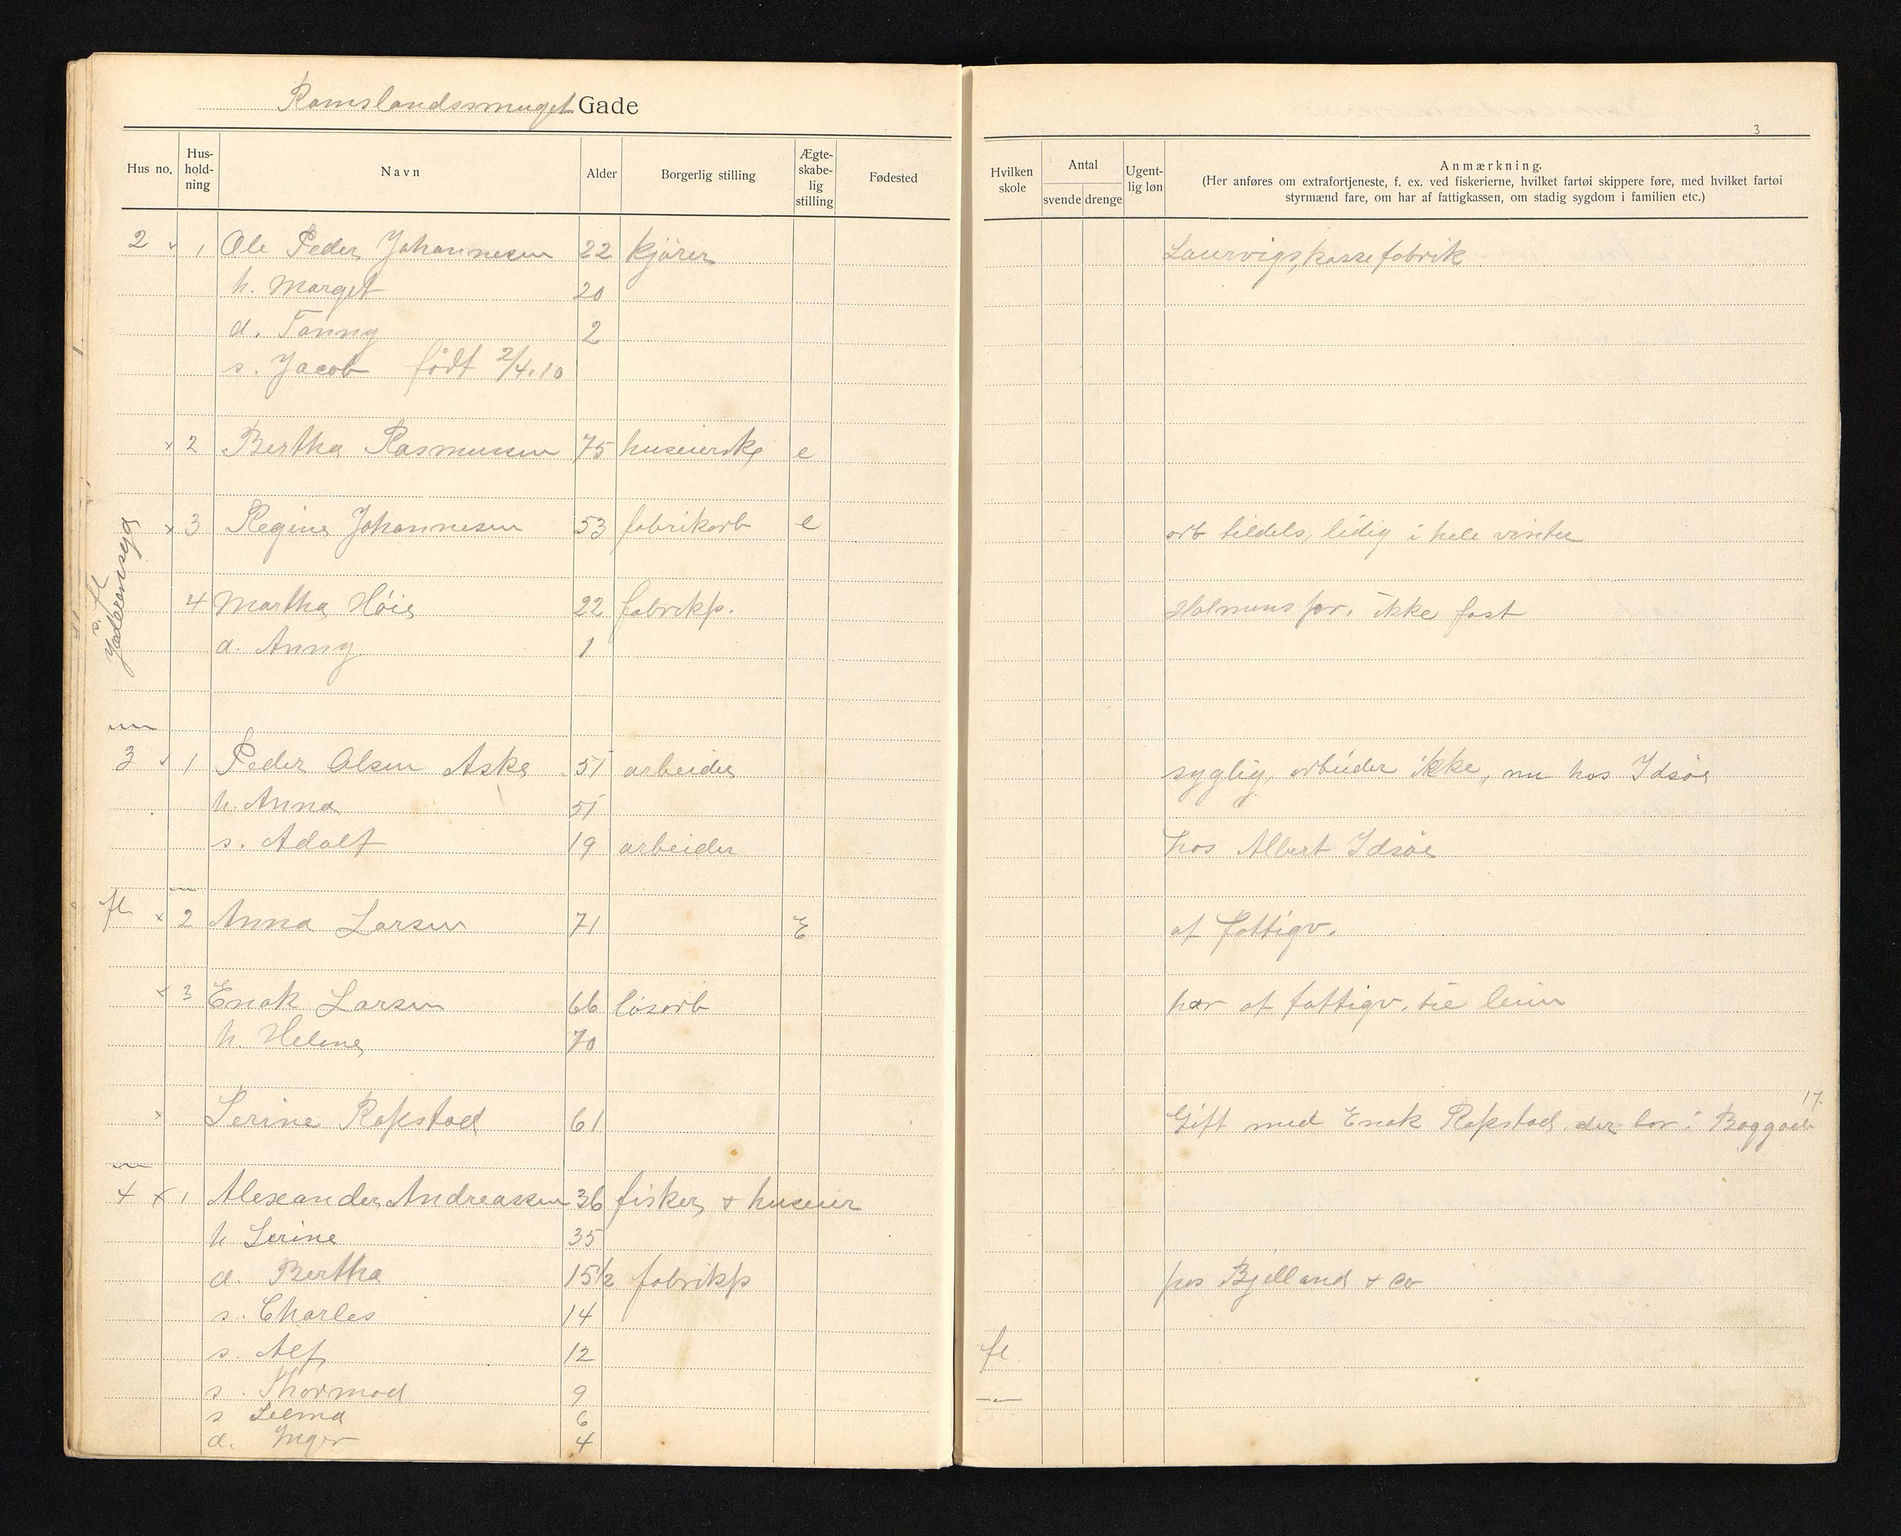 Ramslandssmuget Gade
3
Hus no. Hus-hold-ning Navn Alder Borgerlig stilling Ægte-skabe-lig stilling Fødested Hvilken skole Antal svende drenge Ugent-lig løn Anmærkning.
(Her anføres om extrafortjeneste, f. ex. ved fiskerierne, hvilket fartøi skippere føre, med hvilket fartøi
styrmænd fare, om har af fattigkassen, om stadig sygdom i familien etc.)
2 1 Ole Peder Johannesen 22 kjører Laurvigs kassefabrik
h. Marget 20
d. Fanny 2
s. Jacob født 2/4.10
x 2 Bertha Rasmussen 75 huseierske e
x 3 Regine Johannesen 53 fabrikarb e arb tildels, ledig i hele vinter
4 Martha Høie 22 fabrikp. Holmens pr. ikke fast
d. Anny 1
3 1 Peder Olsen Aske 51 arbeider syglig, arbeider ikke, nu hos Idsøe
h. Anna 51
s. Adolf 19 arbeider hos Albert Idsøe
fl x 2 Anna Larsen 71 E af fattigv.
x 3 Enok Larsen 66 løsarb har af fattigv. til leien
h. Helene 70
x Serine Rapstad 61 Gift med Enok Rapstad der bor i Baggade 17.
4 x 1 Alexander Andreassen 36 fisker + huseier
h Serine 35
d. Bertha 15½ fabrikp hos Bjelland + Co
s. Charles 14
s. Alf 12 fl
s. Thormod 9 —"—
s Selma 6
d. Inger 4